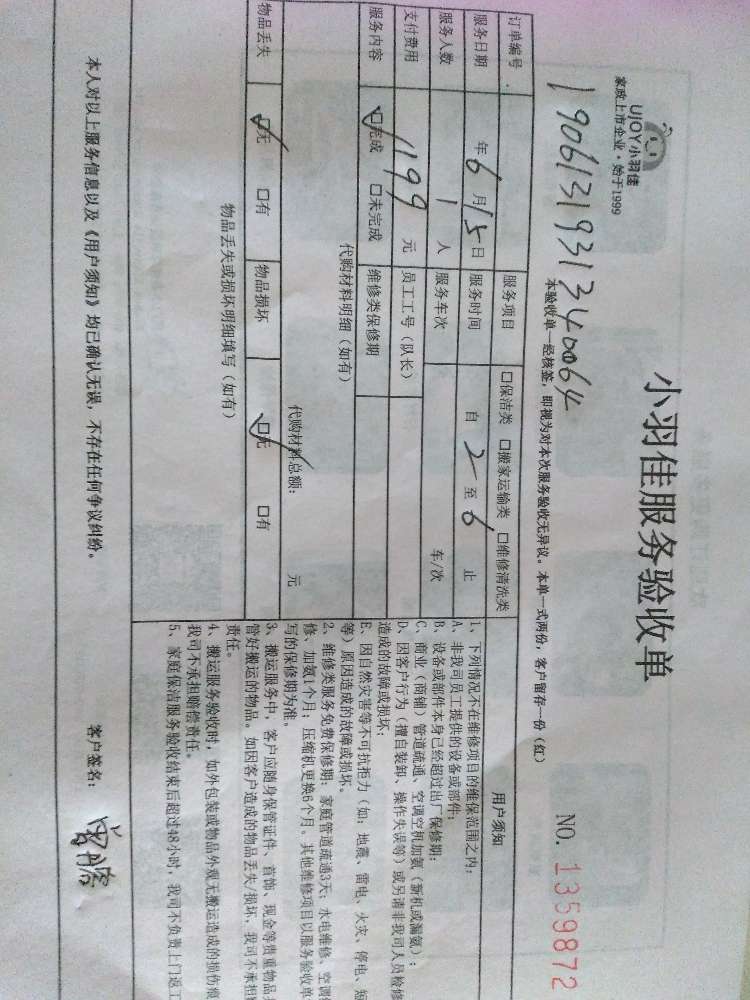 UJOY小羽佳
家政上市企业·始于1999
小羽佳服务验收单
NO. 1359872
本验收单一经核签，即视为对本次服务验收无异议。本单一式两份，客户留存一份（红）
订单编号 19061319313240064
服务项目 □保洁类 □搬家运输类 □维修清洗类
服务日期 年6月15日 服务时间 自2至6止
服务人数 1人 服务车次 车/次
支付费用 1199元 员工工号（队长）
服务内容 ☑完成 □未完成 维修类保修期
代购材料明细（如有）
代购材料总额： 元
物品丢失 ☑无 □有 物品损坏 ☑无 □有
物品丢失或损坏明细填写（如有）
用户须知
1、下列情况不在维修项目的维保范围之内：
A、非我司员工提供的设备或部件；
B、设备或部件本身已经超过出厂保修期；
C、商业（商铺）管道疏通、空调空机加氨（新机或漏氨）；
D、因客户行为（擅自装卸、操作失误等）或另请非我司人员检修
造成的故障或损坏；
E、因自然灾害等不可抗拒力（如：地震、雷电、火灾、停电、短
等）原因造成的故障或损坏。
2、维修类服务免费保修期：家庭管道疏通3天；水电维修、空调
修、加氨1个月；压缩机更换6个月。其他维修项目以服务验收单
写的保修期为准。
3、搬运服务中，客户应随身保管证件、首饰、现金等贵重物品
管好搬运的物品。如因客户造成的物品丢失/损坏，我司不承担
责任。
4、搬运服务验收时，如外包装或物品外观无搬运造成的损伤痕
我司不承担赔偿责任。
5、家庭保洁服务验收结束后超过48小时，我司不负责上门返工
本人对以上服务信息以及《用户须知》均已确认无误，不存在任何争议纠纷。
客户签名：